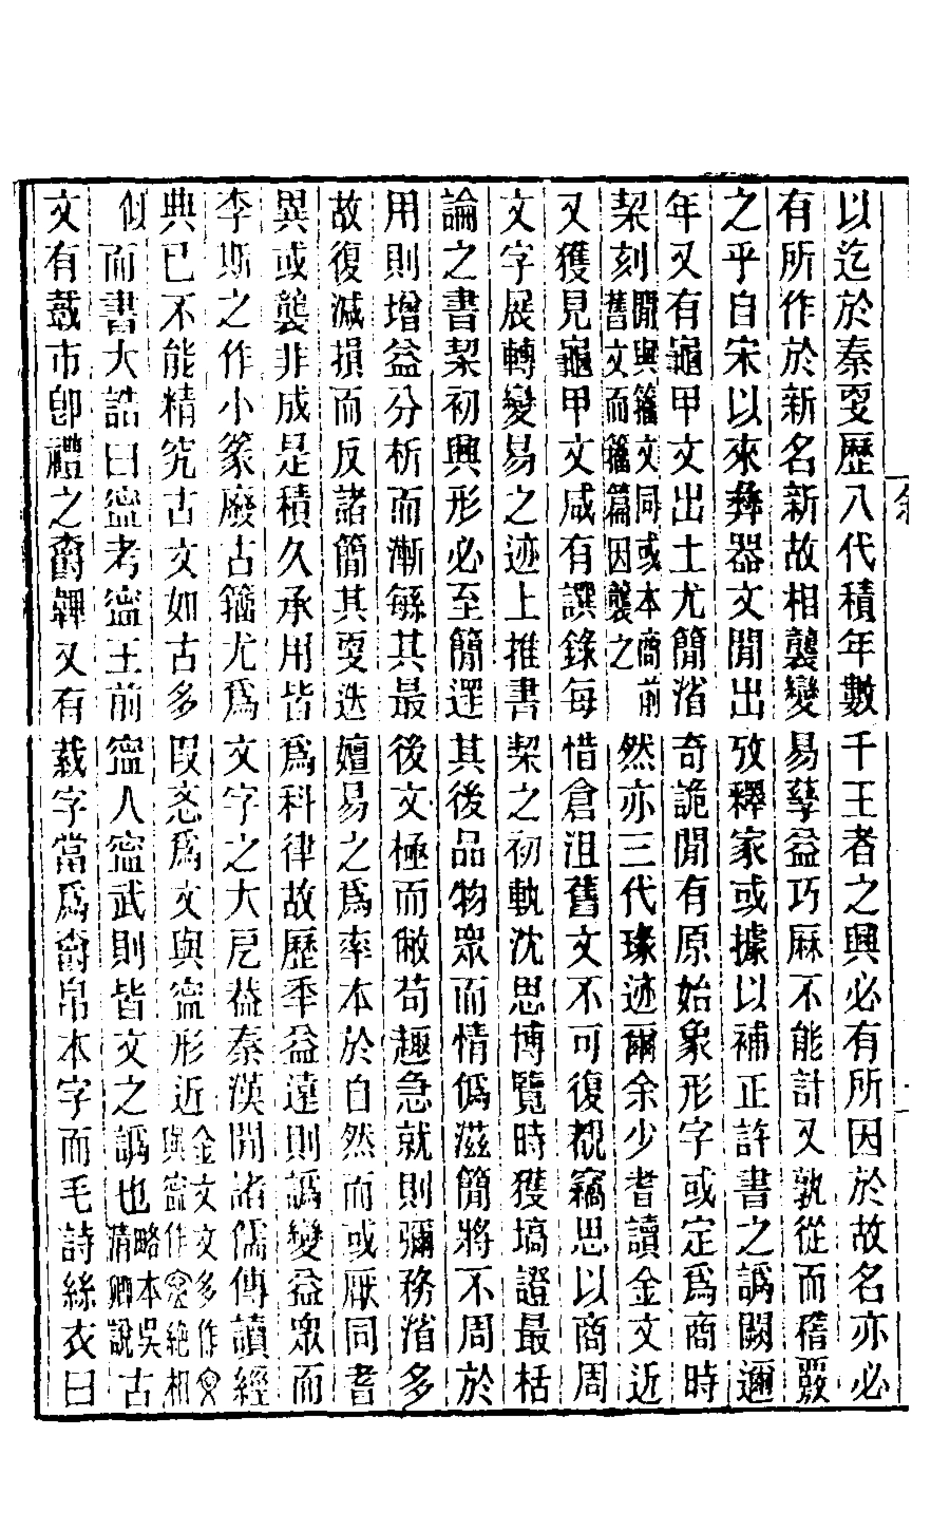 以迄於秦㪅歷八代積年數千王者之興必有所因於故名亦必
有所作於新名新故相襲變易孳益巧厤不能計又孰從而稽覈
之乎自宋以來彝器文閒出攷釋家或據以補正許書之譌闕邇
年又有龜甲文出土尤簡渻奇詭閒有原始象形字或定爲商時
栔刻閒與籀文同或本商前舊文而籀篇因襲之然亦三代瑑迹爾余少耆讀金文近
又獲見龜甲文咸有譔錄每惜倉沮舊文不可復覩竊思以商周
文字展轉變易之迹上推書栔之初軌沈思博覽時獲塙證最栝
論之書栔初興形必至簡遝其後品物衆而情僞滋簡將不周於
用則增益分析而漸緐其最後文極而敝苟趣急就則彌務渻多
故復減損而反諸簡其㪅迭嬗易之爲率本於自然而或厭同耆
異或襲非成是積久承用皆爲科律故歷秊益遠則譌變益衆而
李斯之作小篆廢古籀尤爲文字之大戹葢秦漢閒諸儒傳讀經
典已不能精究古文如古多叚忞爲文與寍形近金文文多作與寍作絶相
似而書大誥曰寍考寍王前寍人寍武則皆文之譌也略本吳清卿說古
文有市卽禮之爵韠又有字當爲爵帛本字而毛詩絲衣曰